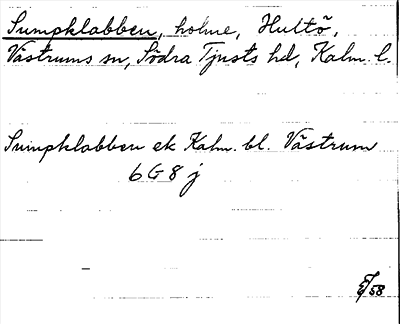 Sumpklabben, holme, Hultö,
Västrums sn, Södra Tjusts hd, Kalm. l.
Sumpklabben ek Kalm. bl. Västrum
6 G 8 j
58